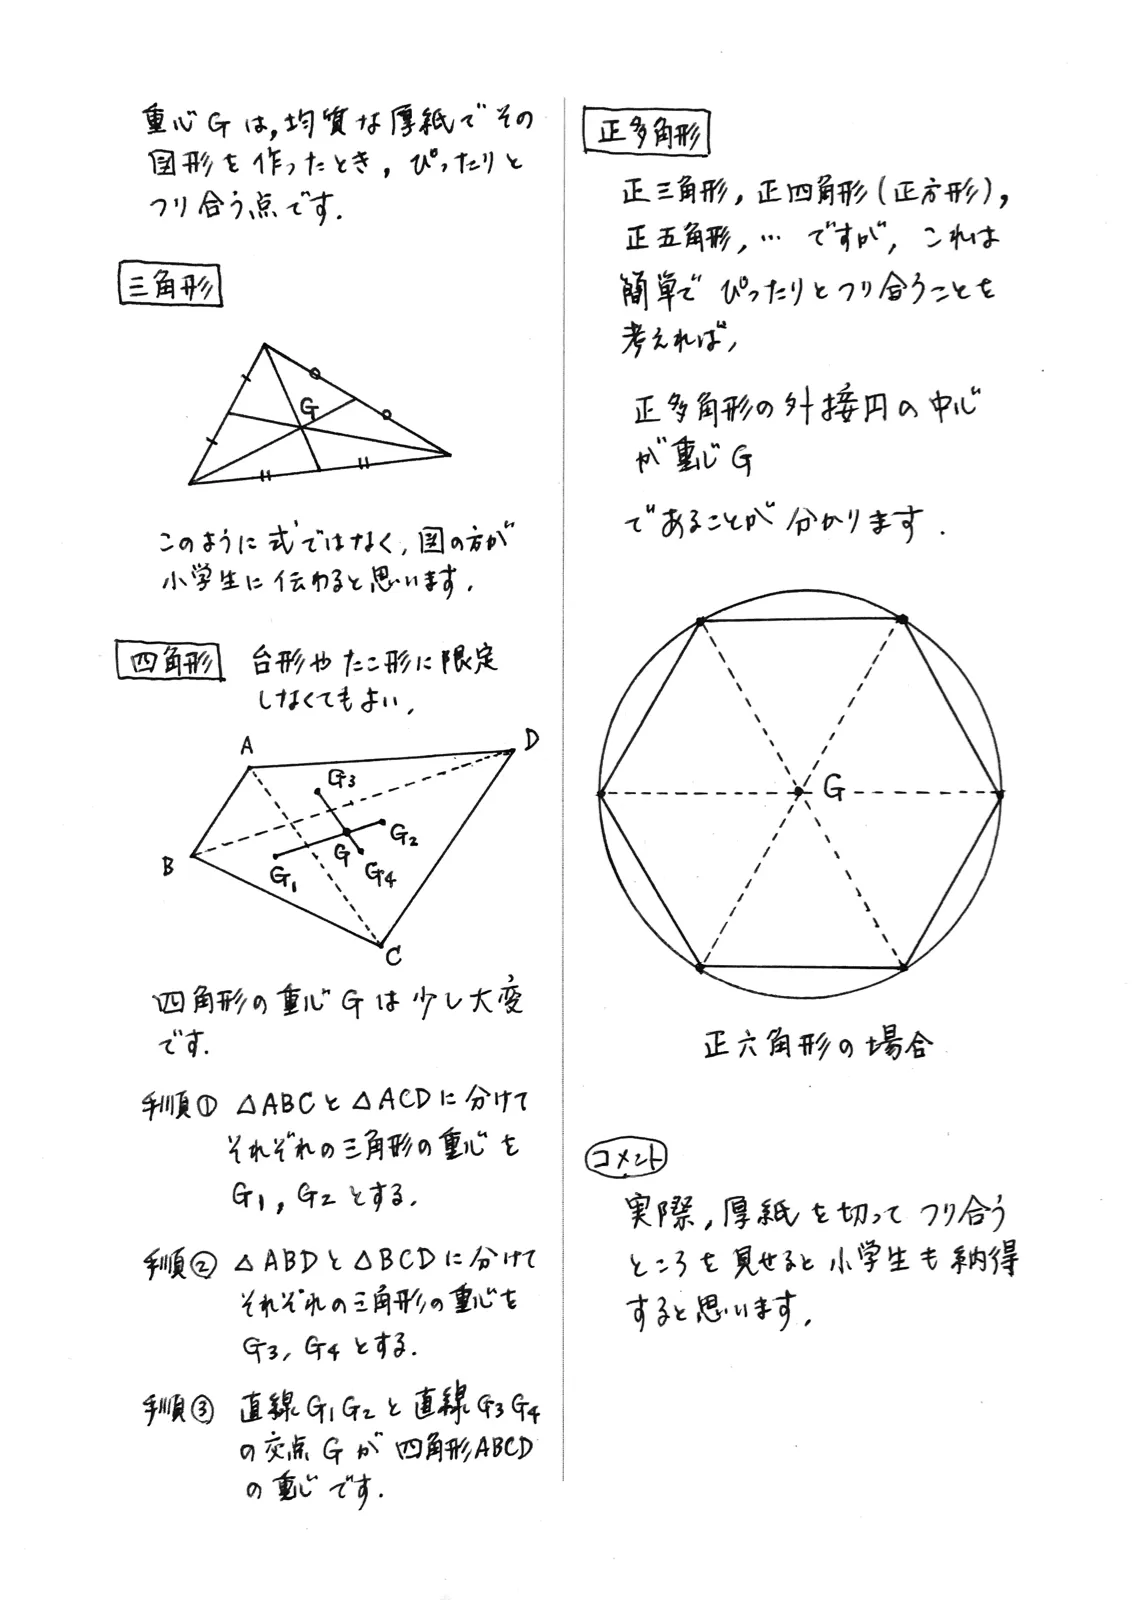 重心Gは,均質な厚紙でその
図形を作ったとき,ぴったりと
つり合う点です.
三角形
G
このように式ではなく,図の方が
小学生に伝わると思います.
四角形 台形やたこ形に限定
しなくてもよい.
A
D
G3
B
G2
G
G1
G4
C
四角形の重心Gは少し大変
です.
手順① △ABCと△ACDに分けて
それぞれの三角形の重心を
G1,G2とする.
手順② △ABDと△BCDに分けて
それぞれの三角形の重心を
G3,G4とする.
手順③ 直線G1G2と直線G3G4
の交点Gが四角形ABCD
の重心です.
正多角形
正三角形,正四角形(正方形),
正五角形,…ですが,これは
簡単でぴったりとつり合うことを
考えれば,
正多角形の外接円の中心
が重心G
であることが分かります.
G
正六角形の場合
コメント
実際,厚紙を切ってつり合う
ところを見せると小学生も納得
すると思います.